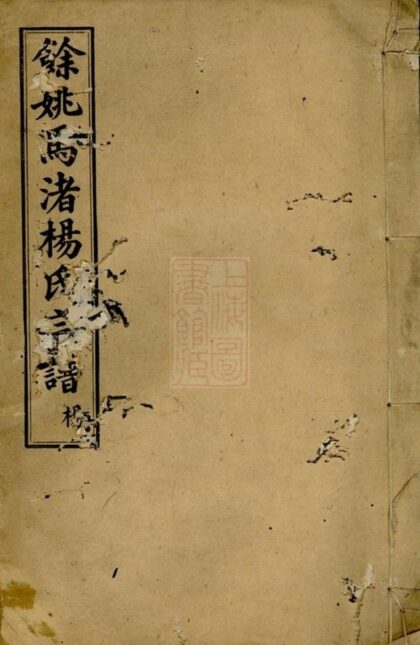 上海圖
書館藏
餘姚爲渚楊氏宗譜
楊